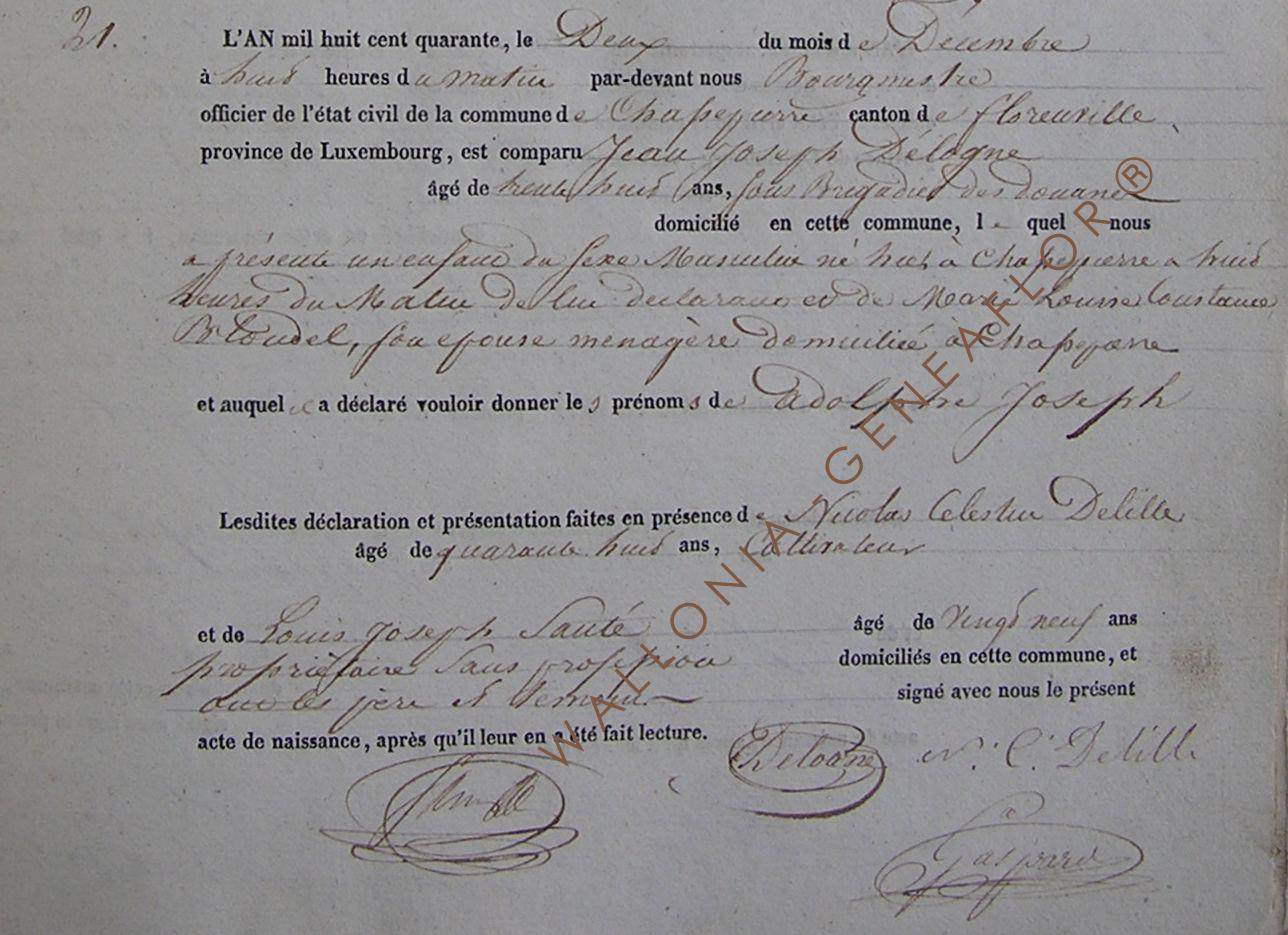 21.
L'AN mil huit cent quarante, le Deux du mois de Décembre
à huit heures du matin par-devant nous Bourgmestre
officier de l'état civil de la commune de Chassepierre canton de florenville,
province de Luxembourg, est comparu Jean Joseph Délogne
âgé de trente huit ans, sous Brigadier des douanes
domicilié en cette commune, le quel nous
a présenté un enfant du sexe Masculin né hier à Chassepierre a huit
heures du Matin de lui déclarant et de Marie Louise Constance
Blondel, son epouse menagère domiciliée à Chassepierre
et auquel il a déclaré vouloir donner les prénoms de Adolphe Joseph
Lesdites déclaration et présentation faites en présence de Nicolas Celestin Delille
âgé de quarante huit ans, Cultivateur
et de Louis Joseph Santé âgé de vingt neuf ans
propriétaire sans profession domiciliés en cette commune, et
ont les père et temoins signé avec nous le présent
acte de naissance, après qu'il leur en a été fait lecture.
Delogne N. C. Delille
Gaspard
WALLONIA-GENEAFLOR ®